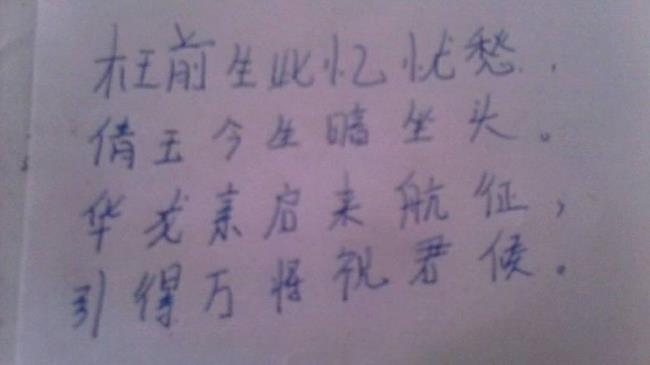 枉前生此忆忧愁.
倩玉今生暗坐头。
华戎亲启来航征,
引得万将祝君候。